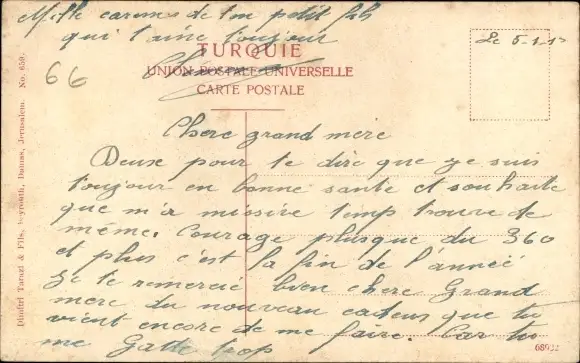 Mille caresses de ton petit fils
qui t'aime toujour
TURQUIE
UNION POSTALE UNIVERSELLE
CARTE POSTALE
66
Le 5-1-1
Chere grand mere
Deux pour te dire que je suis
toujour en bonne sante et souhaite
que m'a missive temp trouve de
même. Courage plusque du 360
et plus c'est la fin de l'anneé
Je te remercié bien chere Grand
mere du nouveau cadeus que tu
vient encore de me faire. Car tu
me Gatte trop
Dimitri Tarazi & Fils, Beyrouth, Damas, Jerusalem. No. 659.
68922